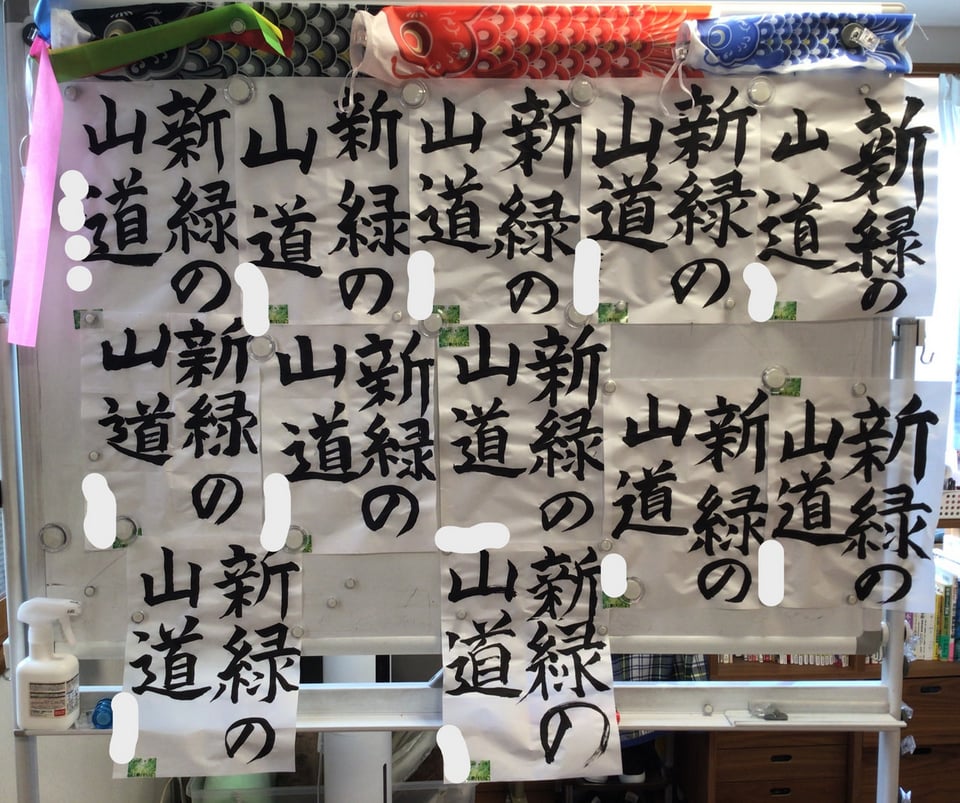 新緑の
山道
新緑の
山道
新緑の
山道
新緑の
山道
新緑の
山道
新緑の
山道
新緑の
山道
新緑の
山道
新緑の
山道
新緑の
山道
新緑の
山道
新緑の
山道